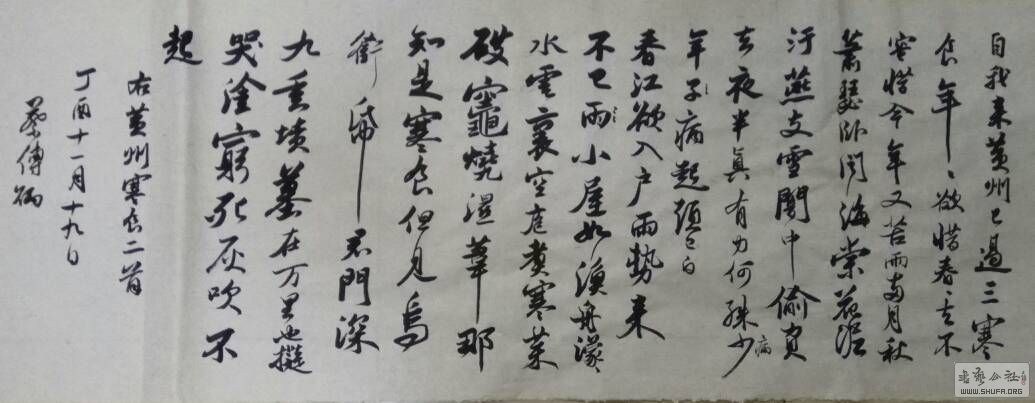 自我来黄州已過三寒
食年〻欲惜春〻去不
容惜今年又苦雨两月秋
萧瑟卧闻海棠花泥
汙燕支雪闇中偷負
去夜半真有力何殊少
年子病起頭已白
病
春江欲入户雨勢来
不已雨小屋如漁舟濛
水雲裏空庖煮寒菜
破竈燒湿葦那
知是寒食但見烏
銜帋君門深
九重墳墓在万里也擬
哭塗窮死灰吹不
起
右黄州寒食二首
丁酉十一月十九日
蔡傳炳
書藝公社
WWW.SHUFA.ORG